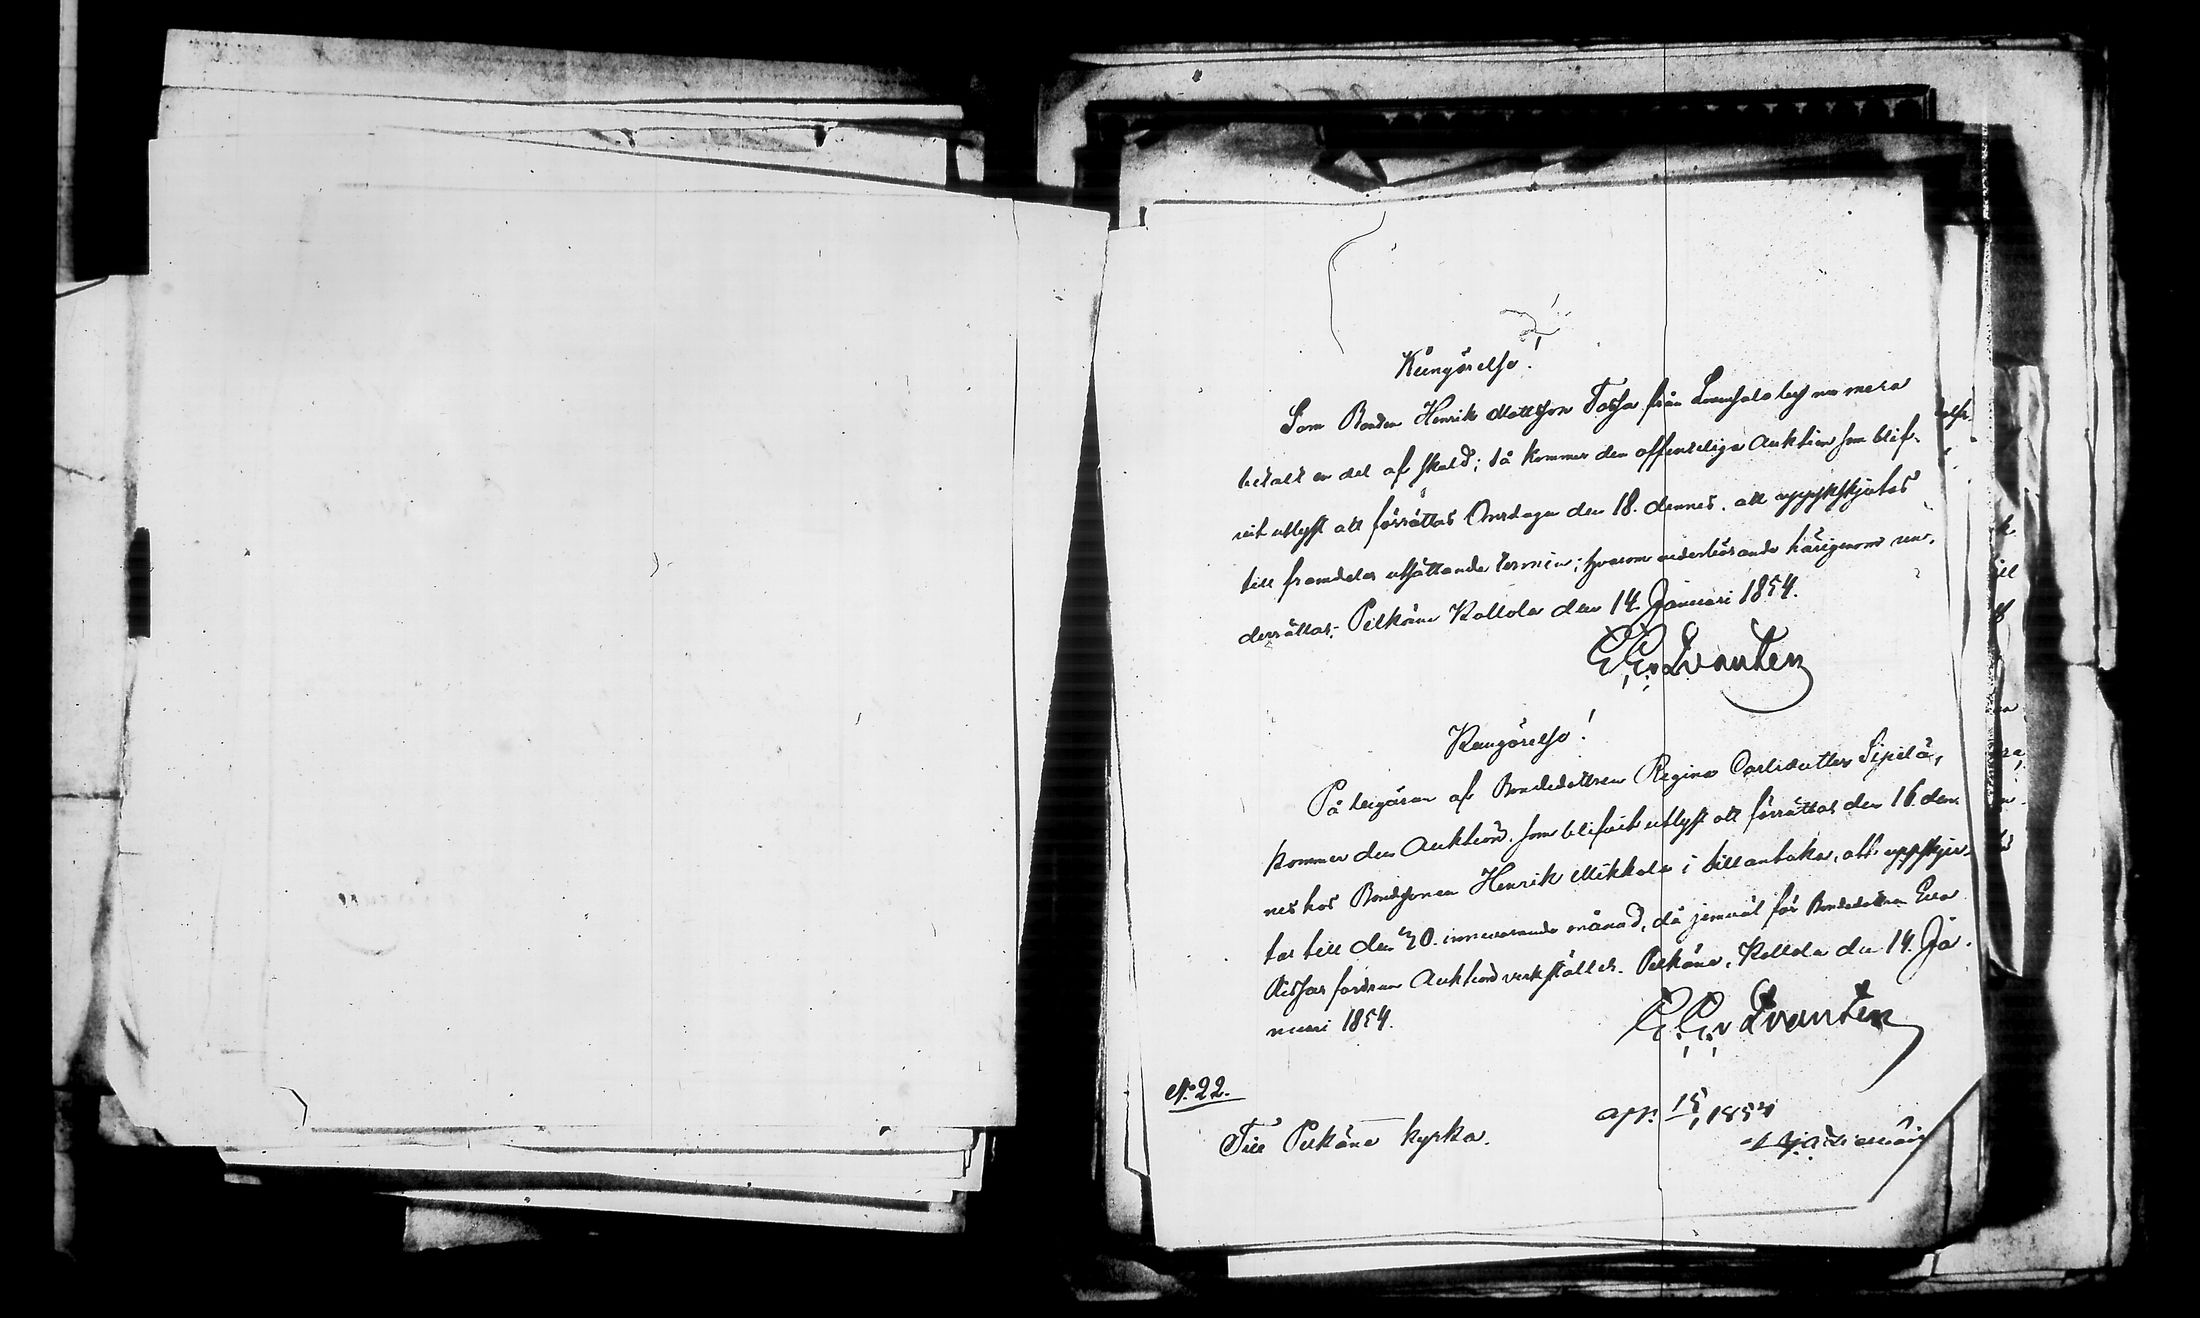 Kungörelse!
Som Bonden Henrik Mattsson Tossa från Luensalo by nu mera
betalt en del af skuld; så kommer den offentliga Auktion som blif-
vit utlyst att förrättas Onsdagen den 18. dennes, att uppskjutas
till framdeles utsättande termin; hvarom vederbörande härigenom un-
derrättas; Pelkäne Kollola den 14. Januari 1854.
E. E. v Qvanten
Kungörelse!
På begäran af Bondedottren Regina Carlsdotter Sipilä,
kommer den Auktion, som blifvit utlyst att förrättas den 16. den-
nes hos Bondsonen Henrik Mikkola i, att uppskju-
tas till den 30. innevarande månad, då jemväl för Bondedottren Eva
fordran Auktion verkställes. Pelkäne, Kollola den 14. Ja-
nuari 1854.
E. E. v Qvanten
No 22.
Till Pelkäne kyrka.
upp. 15/1 1854